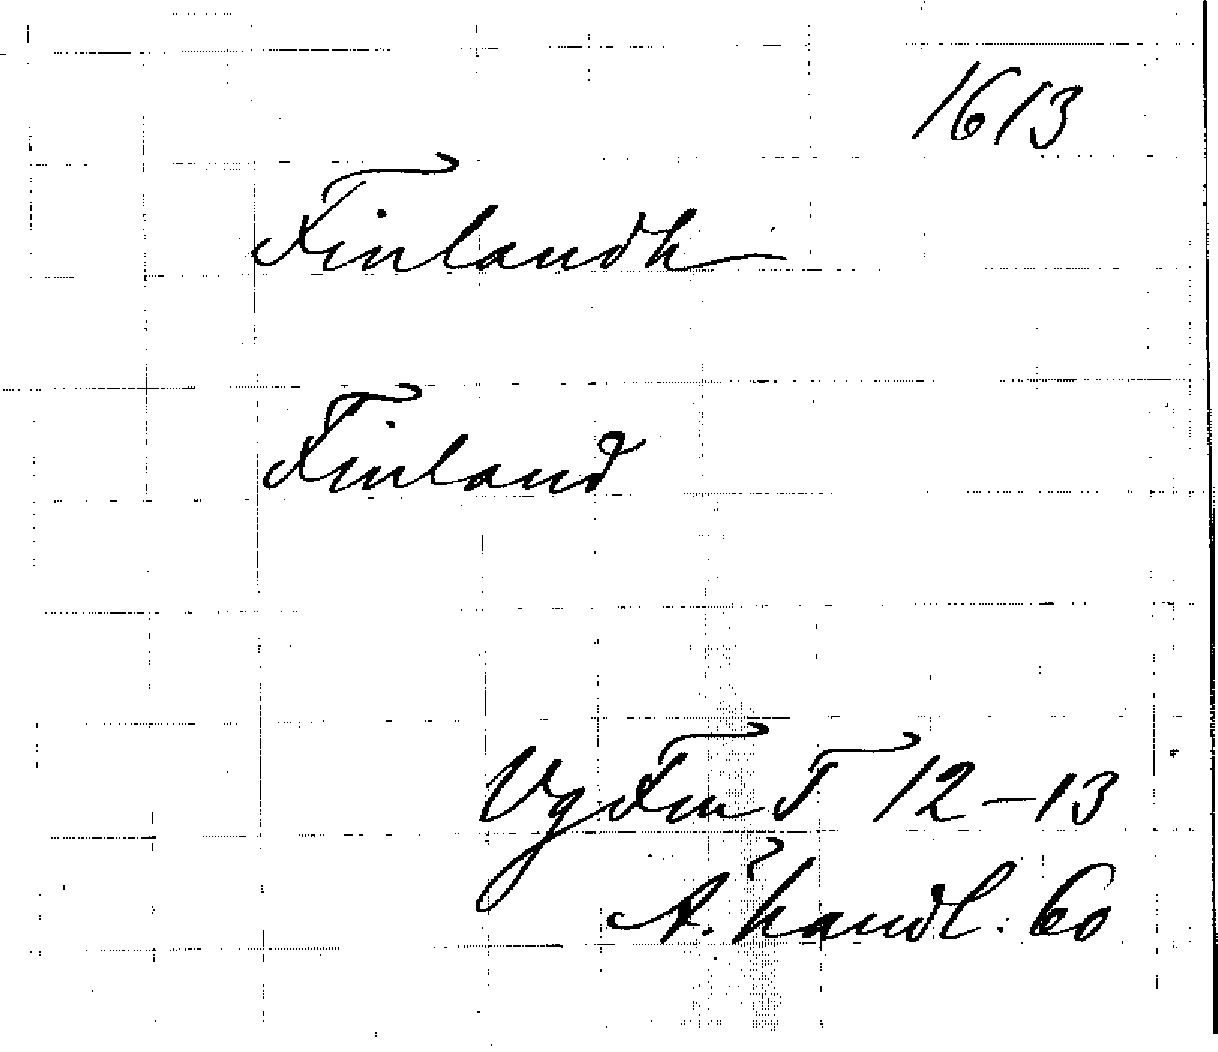 1613
Finlandh
Finland
Vg Fm T 12-13
A. handl. 60